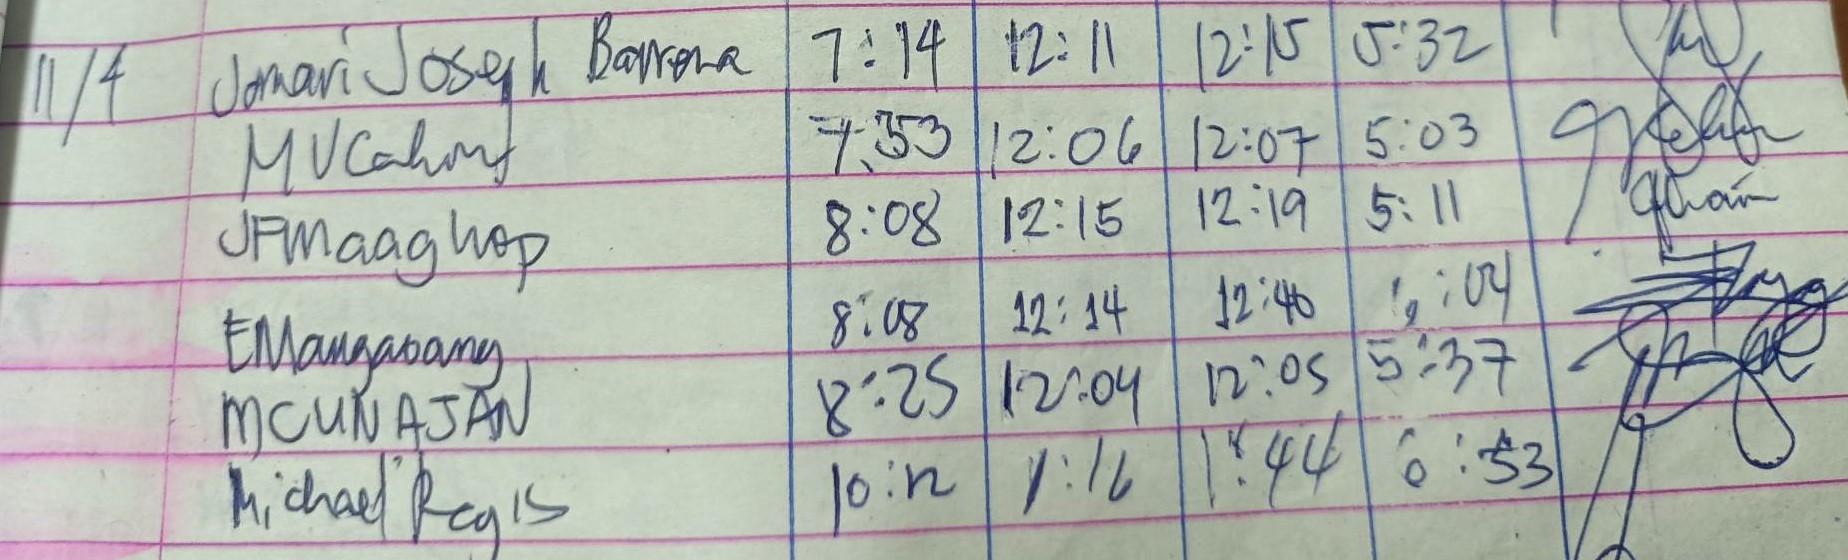 11/4 Jomari Joseph Barrona 7:14 12:11 12:15 5:32
7:53 12:06 12:07 5:03
JFMaaghop 8:08 12:15 12:19 5:11
EMangabang 8:08 12:14 12:40 :04
MCUNAJAN 8:25 12:04 12:05 5:37
Michael Regis 10:12 1:16 1:44 6:53